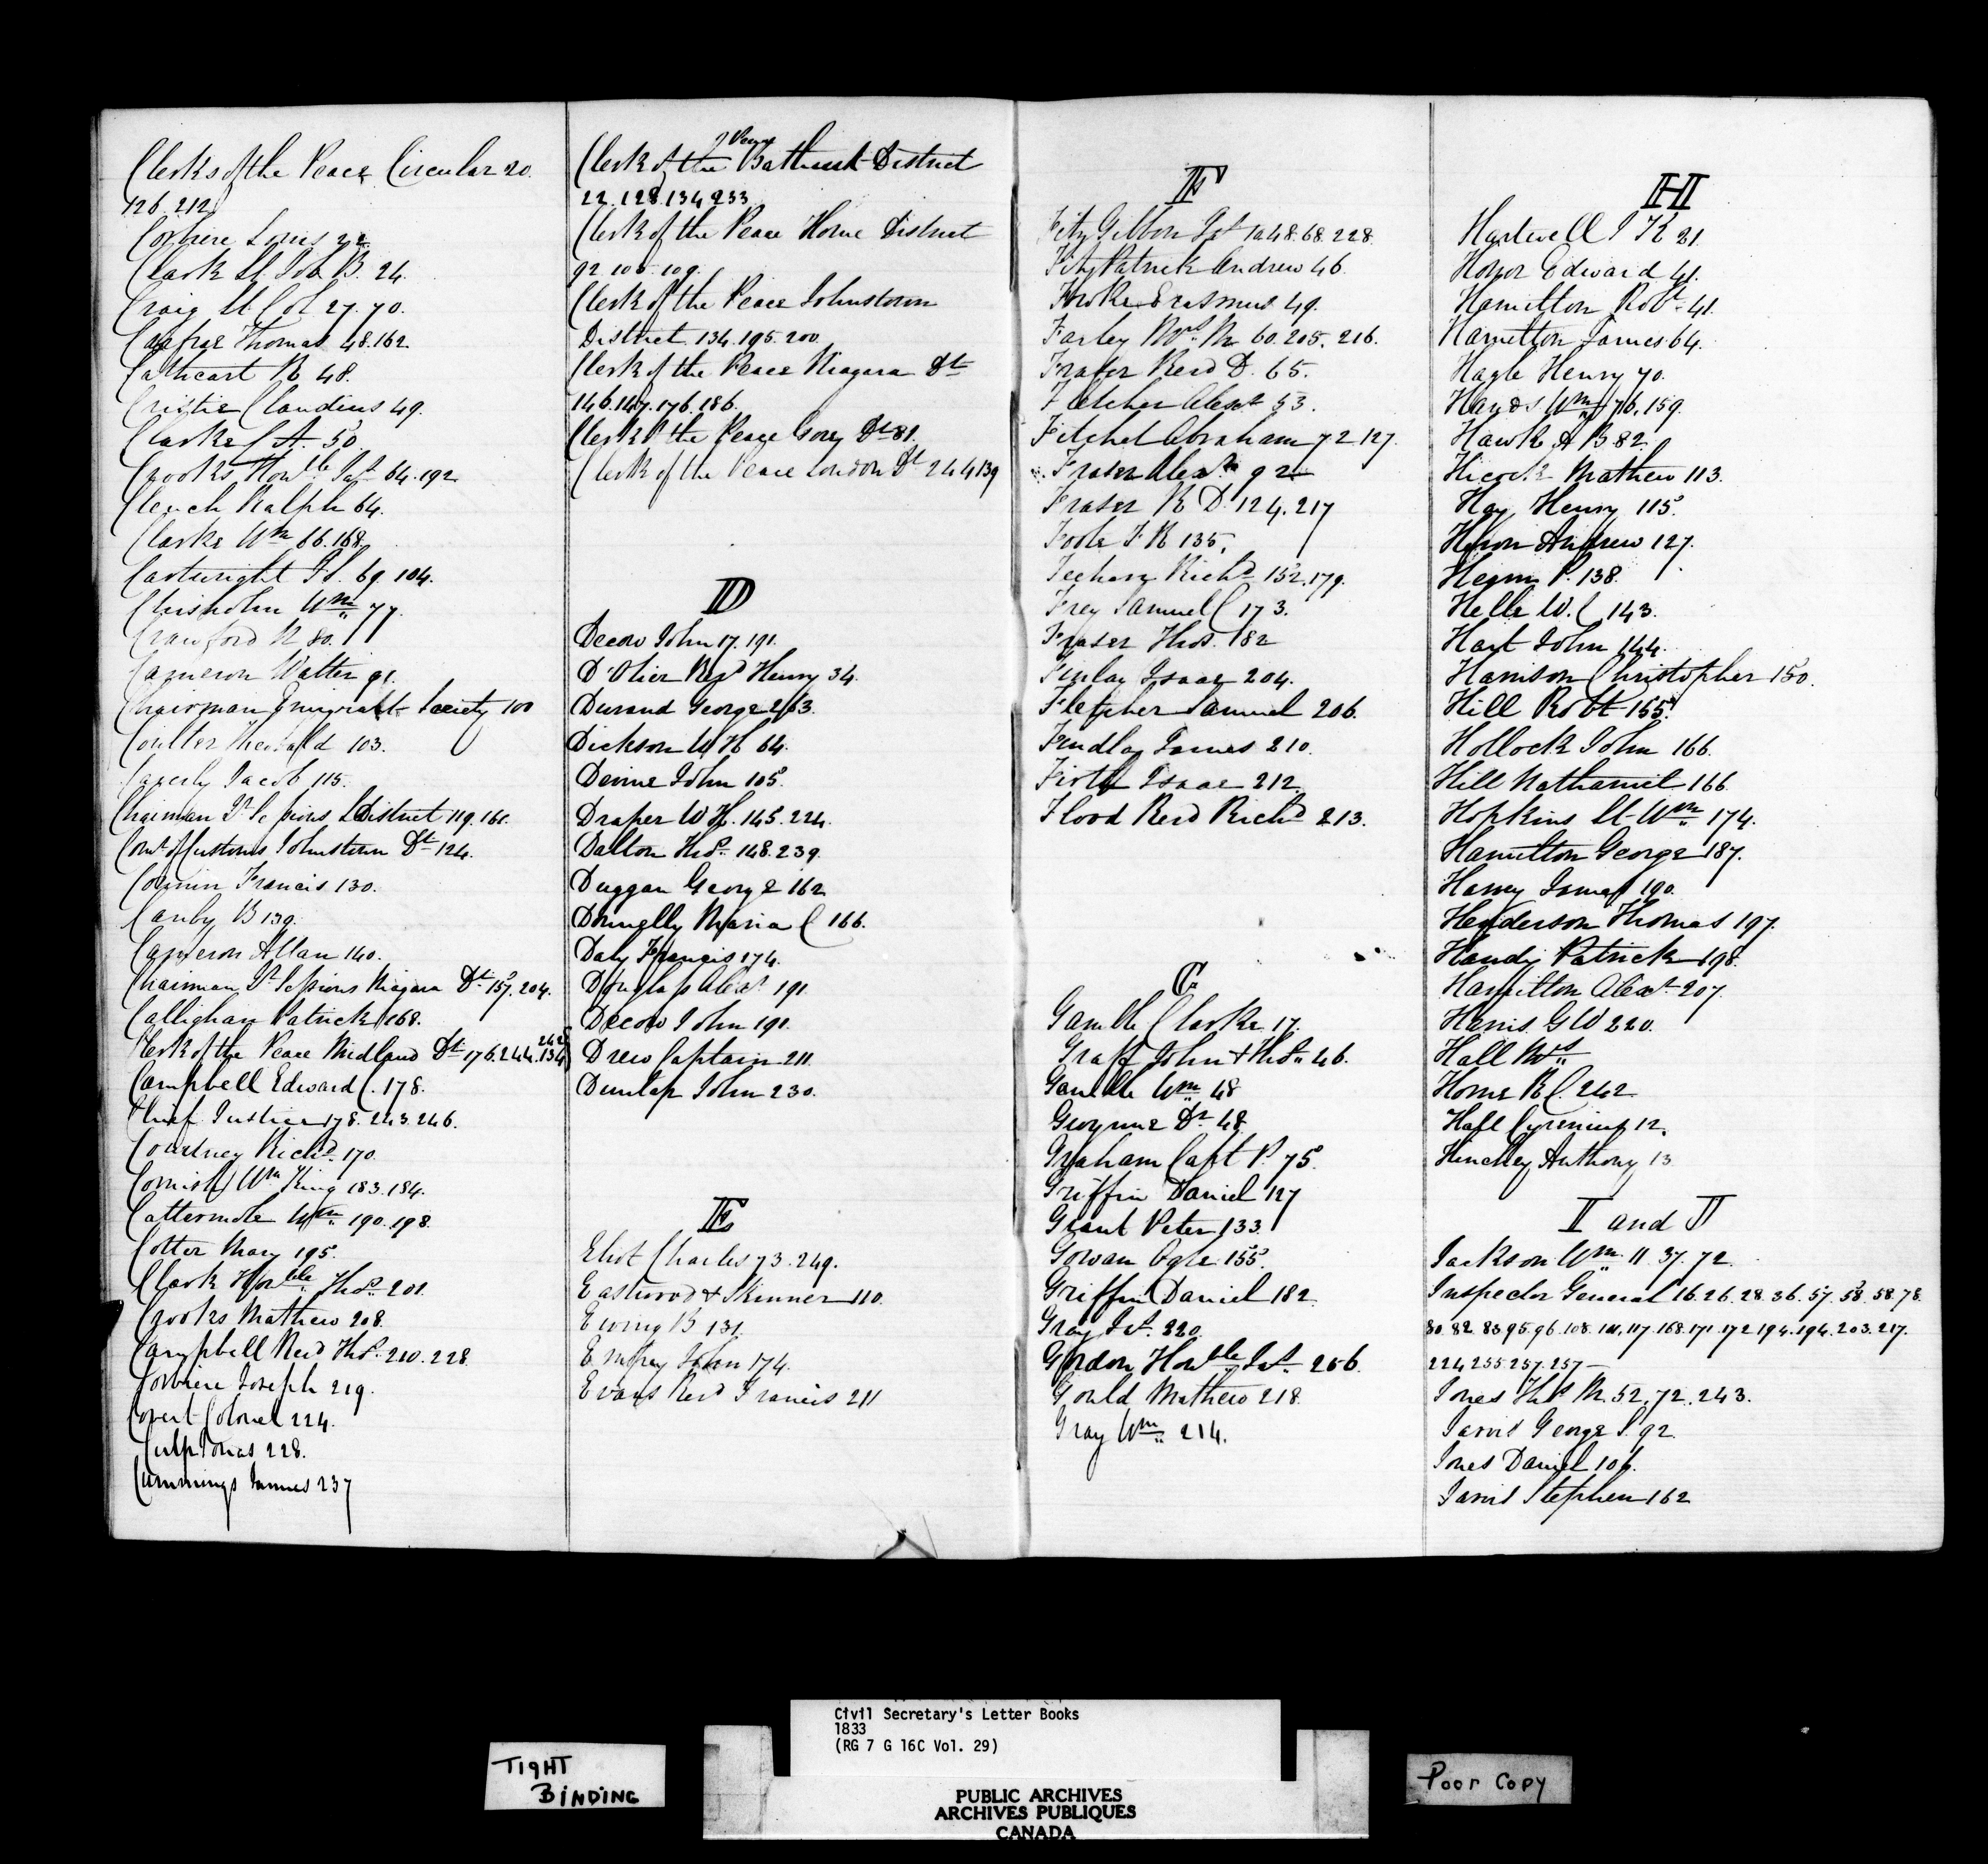 Clerks of the Peace Circular 20.
126. 212
Corbiere Louis 22.
Clark Lt Col B. 24.
Craig Lt Col 27. 70.
Caffrae Thomas 48. 162
Cathcart R 48.
Cristie Claudius 49.
Clarke A. 50
Crooks Honble Jas 64. 192
Clench Ralph 64.
Clarke Wm 66. 168.
Cartwright J S. 69. 104.
Chisholm Wm 77.
Crawford N 80.
Cameron Walter 91.
Chairman Emigrant Society 100
Coulter Theobald 103.
Caverly Jacob 115.
Chairman Qr Sessions L District 119. 161.
Comt of Customs Johnstown Dt 124.
Francis 130.
Canby B 139.
Cameron Allan 140.
Chairman Qr Sessions Niagara Dt 157. 204.
Callighan Patrick 168.
Clerk of the Peace Midland Dt 176. 244. 134
Campbell Edward C. 178.
Chief Justice 178. 243. 246.
Courtney Richd 170.
Cornish Wm King 183. 184.
Cattermole Wm 190. 198.
Cotter Mary 195.
Clark Honble Thos 201.
Crooks Mathew 208.
Campbell Revd Thos 210. 228
Corbiere Joseph 219.
Covert Colonel 224.
Culp Jonas 228.
Cummings James 237
Peace
Clerk of the Bathurst District
22. 128. 134 233
Clerk of the Peace Home District
92. 106. 109.
Clerk of the Peace Johnstown
District 134. 195. 200.
Clerk of the Peace Niagara Dt
146. 147. 176. 186.
Clerk of the Peace Gore Dt 81.
Clerk of the Peace London Dt 244 139
D
Decow John 17. 191.
D'Olier Revd Henry 34.
Durand George 263.
Dickson W H 64.
Devine John 105.
Draper W H. 145. 224.
Dalton Thos 148. 239.
Duggan George 162
Donnelly Maria C 166.
Daly Francis 174.
Douglass Alexr 191.
Decow John 191.
Drew Captain 211.
Dunlap John 230.
E
Eliot Charles 73. 249.
Eastwood & Skinner 110.
Ewing B 131.
Empey John 174.
Evans Revd Francis 211
F
Fitz Gibbon Jas 10 48. 68. 228.
Fitz Patrick Andrew 46.
Fooke Erasmus 49.
Farley Mrs M 60. 205. 216.
Fraser Revd D. 65.
Fletcher Alexr 53.
Fitchet Abraham 72 127.
Fraser Alexr 92
Fraser R D. 124. 217
Foote F R 135.
Richd 152. 179.
Frey Samuel C 173.
Fraser Thos. 182
Finlay Isaac 204.
Fletcher Samuel 206.
Findlay James 210.
Firth Isaac 212
Flood Revd Richd 213.
G
Gamble Clarke 17.
Graff John & Thos 46.
Gamble Wm 48
Gwynne Dr 48.
Graham Capt P. 75.
Griffin Daniel 127
Grant Peter 133.
Gowan Ogle 155.
Griffin Daniel 182.
Gray Jas. 220.
Gordon Honble Jas 256.
Gould Mathew 218.
Gray Wm 214.
H
Hartwell J K 31.
Honor Edward 41.
Hamilton Robt 41.
Hamilton James 64.
Hagle Henry 70.
Hands Wm 76. 159.
Hawke A B 82.
Hicock Mathew 113.
Hay Henry 115.
Heron Andrew 127.
P. 138.
Helle W. C 143.
Hart John 144.
Harrison Christopher 150.
Hill Robt 155.
Hollock John 166.
Hill Nathaniel 166.
Hopkins Lt Wm 174.
Hamilton George 187.
Harvey James 190.
Henderson Thomas 197.
Handy Patrick 198.
Hamilton Alexr 207.
Harris G W 220.
Hall Mrs
Horne R C. 242
Hall Cyrenius 12.
Hinchey Anthony 13
I and J
Jackson Wm 11 37. 72.
Inspector General 16. 26. 28. 36. 57. 58. 58. 78.
80. 82. 83 95. 96. 108. 111. 117 168. 171. 172 194. 194. 203. 217.
224 255 257. 257
Jones Thos M. 52. 72. 243.
Jarvis George S 92.
Jones Daniel 106.
Jarvis Stephen 162
TIGHT
BINDING
Civil Secretary's Letter Books
1833
(RG 7 G 16C Vol. 29)
PUBLIC ARCHIVES
ARCHIVES PUBLIQUES
CANADA
Poor Copy